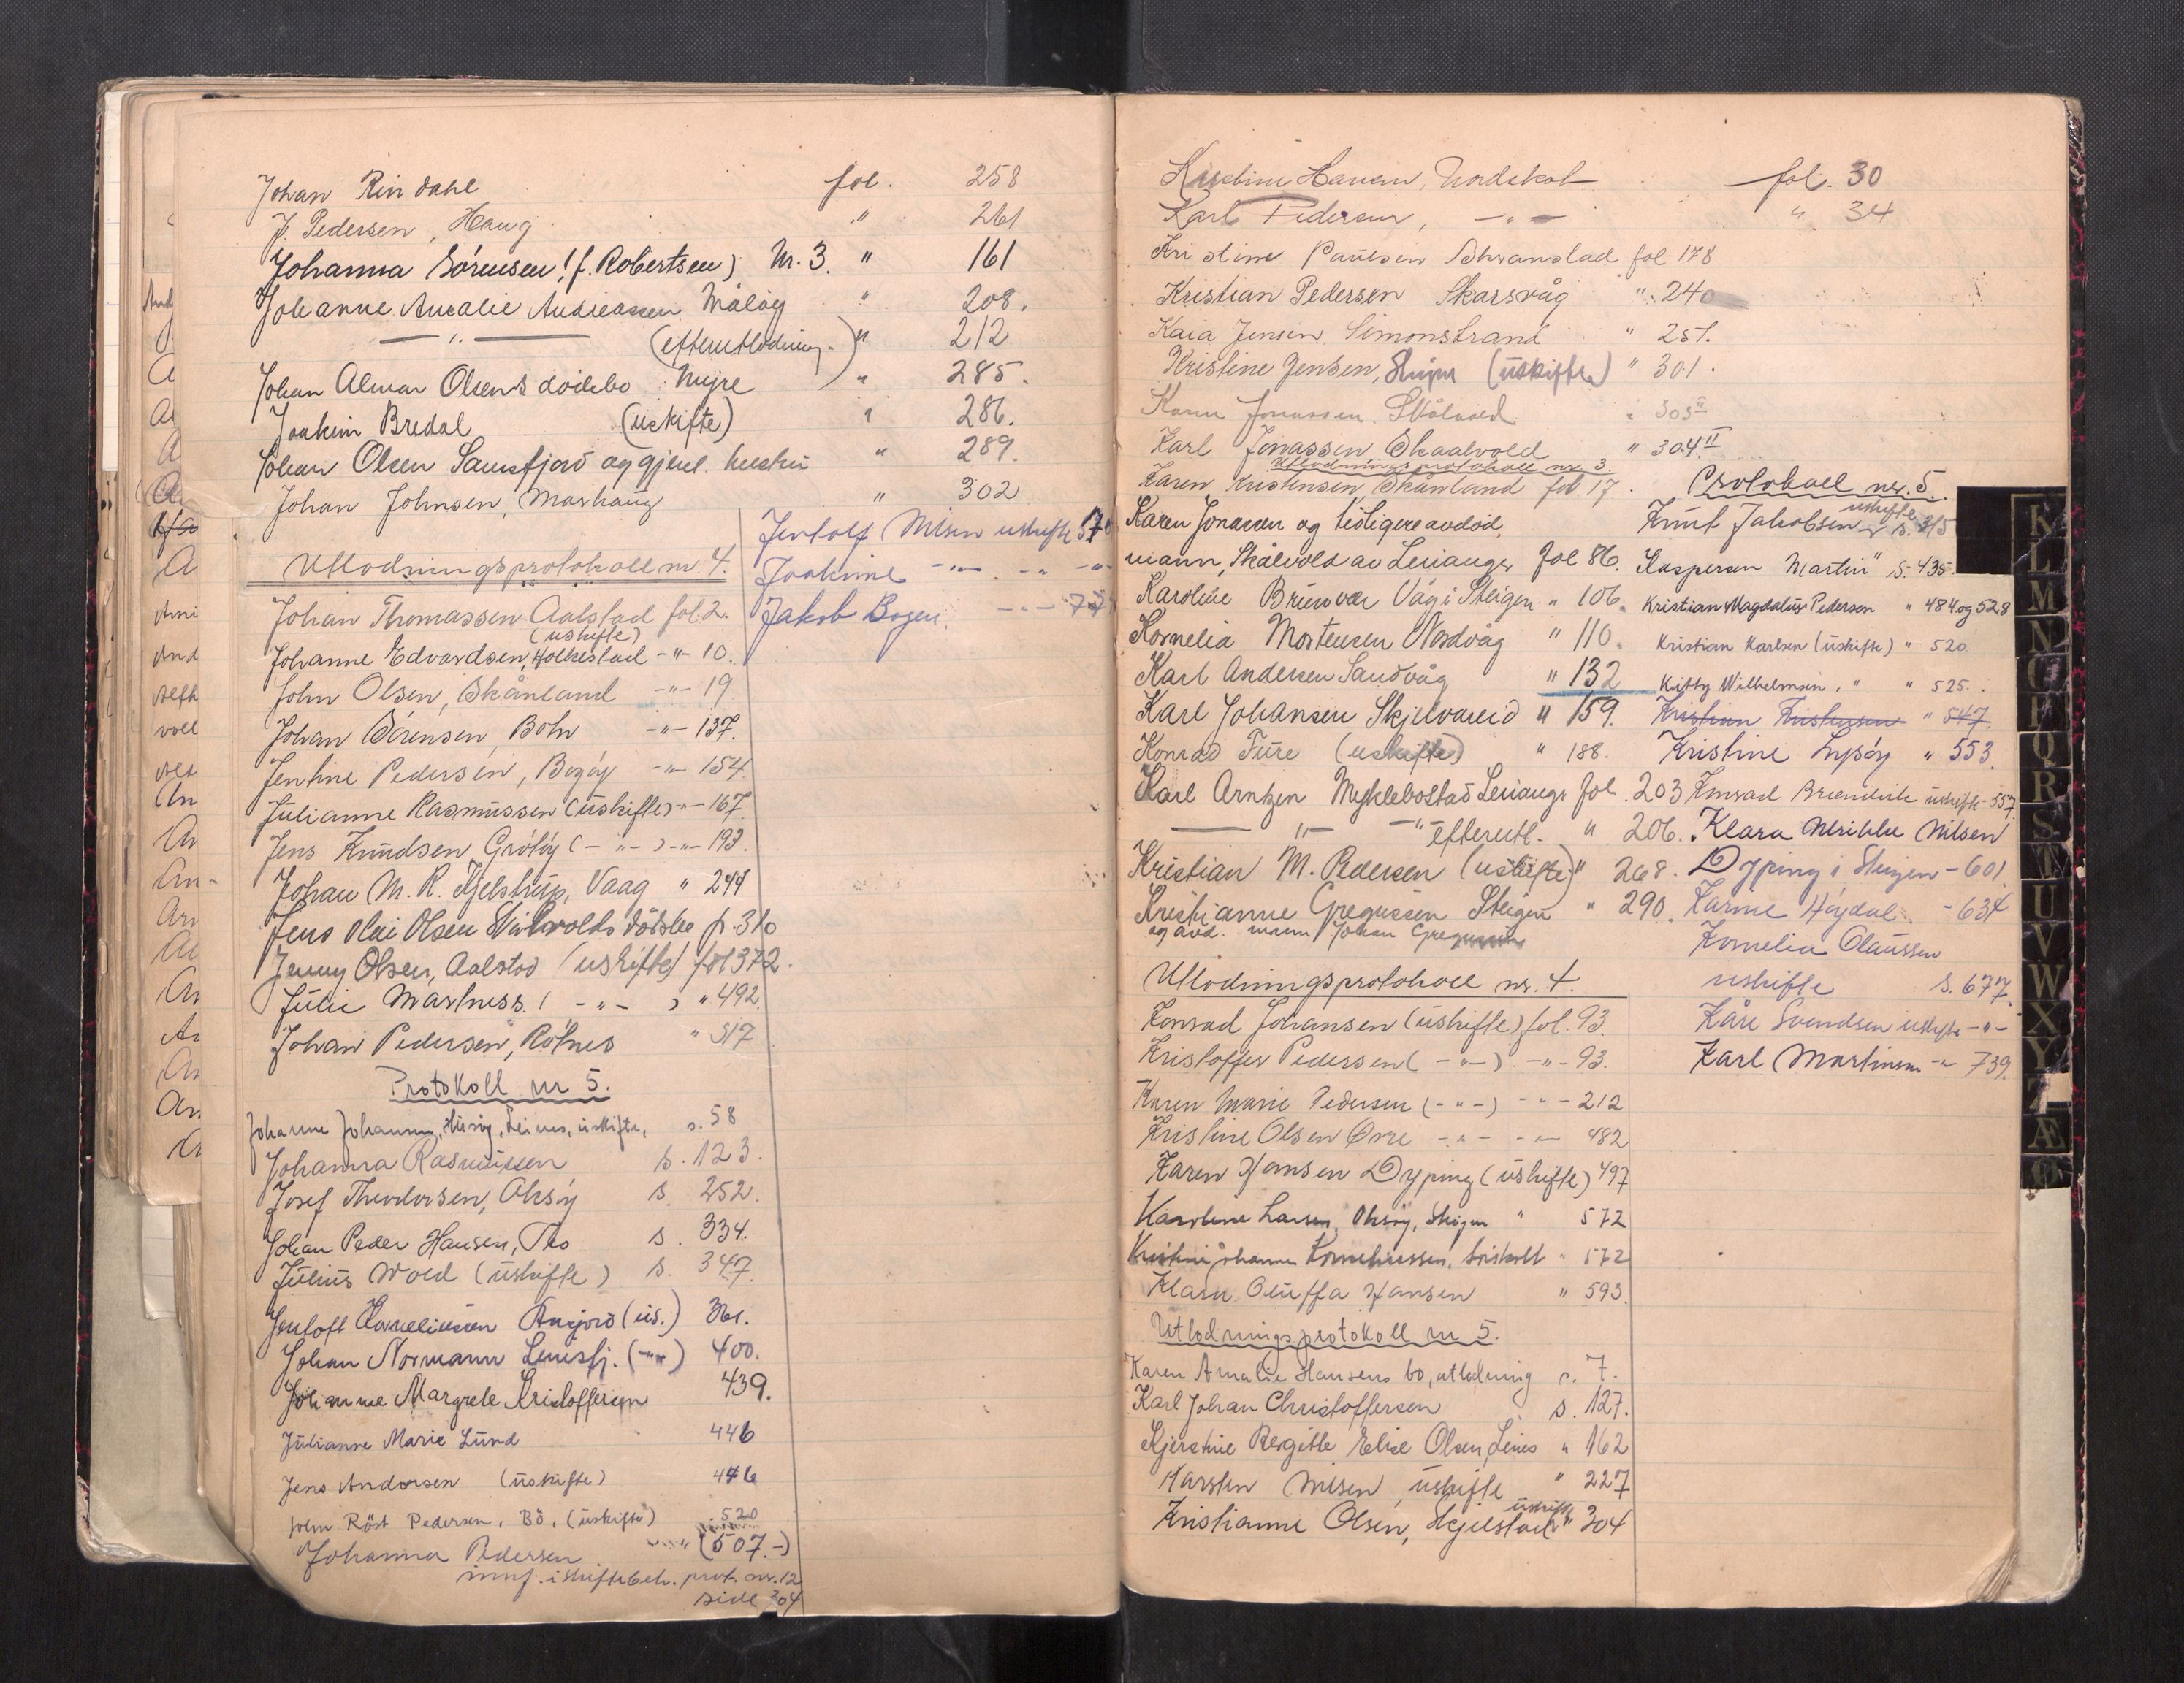 Johan Rindahl fol. 258
J. Pedersen, Haug " 261
Johanna Sörensen! (f. Robertsen) Nr. 3. " 161
Johanne Amalie Andreassen Måløy " 208.
— " — (efterutlodning.) " 212
Johan Almar Olsens dödsbo Myre " 285.
Joakim Bredal (uskifte) " 286.
Johan Olsen Sausfjord og gjenl. hustru " 289.
Johan Johnsen, Marhaug " 302
Utlodningsprotokoll nr. 4.
Johan Thomassen Aalstad fol. 2.
(uskifte)
Johanne Edvardsen, Holkestad -"- 10.
John Olsen, Skånland -"- 19
Johan Sörensen, Bohn -"- 137.
Jentine Pedersen, Bogöy -"- 154.
Julianne Rasmussen (uskifte) -"- 167.
Jens Knudsen Grötöy (-"-) -"- 193.
Johan M. R. Kjelstrup, Vaag " 244
Jens Olai Olsen dödsbo p. 310
Jenny Olsen, Aalstad (uskifte) fol 372.
Julie Marhness (-"-) " 492.
Johan Pedersen, Rötnes " 517
Protokoll nr 5.
Johanne Johansen, Husöy, Leines, uskifte, s. 58
Johanna Rasmussen s. 123.
Josef Theodorsen, Oksöy s. 252.
Johan Peder Hansen, Tho s. 334.
Julius Wold (uskifte) s. 347.
Jentoft Korneliussen (us.) 361.
Johan Normann Leinesfj. (-"-) 400.
Johanne Margrete Kristoffersen 439.
Julianne Marie Lund 446
Jens Andorsen (uskifte) 476
John Röst Pedersen, Bö, (uskifte) 520
Johanna Pedersen (507.-)
innf. i skiftebeh. prot. nr. 12
side 304
Jentoft Nilsen uskifte 57
Joakime -"- -"- -"-
Jakob Bogen -"- 77
Kristine Hansen, Nordskot fol. 30
Karl Pedersen, -"- " 34
Kristine Paulsen Skranstad fol. 178
Kristian Pedersen Skarsvåg " 240
Kaia Jensen Simonstrand " 251.
Kristine Jensen, Steigen (uskifte) " 301.
Karen Jonassen Skålvold " 303 II
Karl Jonassen Skaalvold " 304 II
Utlodningsprotokoll nr. 3.
Karen Kristensen, Skånland fol. 17.
Karen Jonassen og tidligere avdöd
mann, Skålvold av Leiranger fol 86.
Karoline Brunvær Våg i Steigen " 106.
Kornelia Mortensen Nordvåg " 110.
Karl Andersen Sandvåg " 132
Karl Johansen Skjelvareid " 159.
Konrad Fure (uskifte) " 188.
Karl Arntzen Myklebostad Leiranger fol. 203
— " — " efterutl. " 206.
Kristian M. Pedersen (uskifte) " 268.
Kristianne Gregussen Steigen " 290.
og avd. mann Johan Gregussen
Utlodningsprotokoll nr. 4.
Konrad Johansen (uskifte) fol. 93.
Kristoffer Pedersen (-"-) -"- 93.
Karen Marie Pedersen (-"-) -"- 212
Kristine Olsen Övre -"- -"- 482
Karen Hansen Dyping (uskifte) 497
Karoline Larsen, Oksöy, Steigen " 572
Kristine Johanne Korneliussen, " 572
Klara Oluffa Hansen " 593.
Utlodningsprotokoll nr 5.
Karen Amalie Hansens bo, utlodning s. 7.
Karl Johan Christoffersen s. 127.
Kjerstine Bergitte Elise Olsen, Leines " 162
Karsten Nilsen, uskifte " 227
uskifte
Kristianne Olsen, Hjelstad " 304
Protokoll nr. 5.
uskifte
Knut Jakobsen s. 315
Kaspersen Martin " s. 435.
Kristian Magdalus Pedersen " 484 og 528
Kristian Karlsen (uskifte) " 520.
Kitty Wilhelmsen, " " 525.
Kristian Kristensen " 547
Kristine Lysöy " 553.
Konrad uskifte - 557
Klara Ulrikke Nilsen
Dyping i Steigen - 601
Karine Höydal. - 634
Kornelia Olaussen
uskifte s. 677.
Kåre Svendsen uskifte -"-
Karl Martinsen -"- 739.
K
L
M
N
O
P
Q
R
S
T
U
V
W
X
Y
Z
Æ
Ø